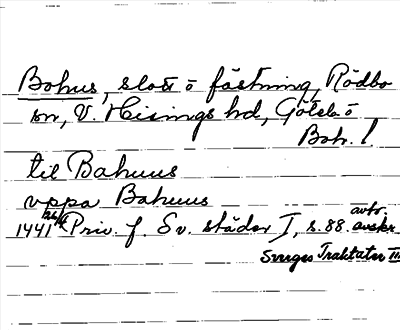 Bohus, slott o fästning, Rödbo
sn, V. Hisings hd, Götebo
Boh. l.
til Bahuus
vppa Bahuus
1441 26/4 Priv. f. Sv. städer I, s. 88. avtr. avskr.
Sverges Traktater III